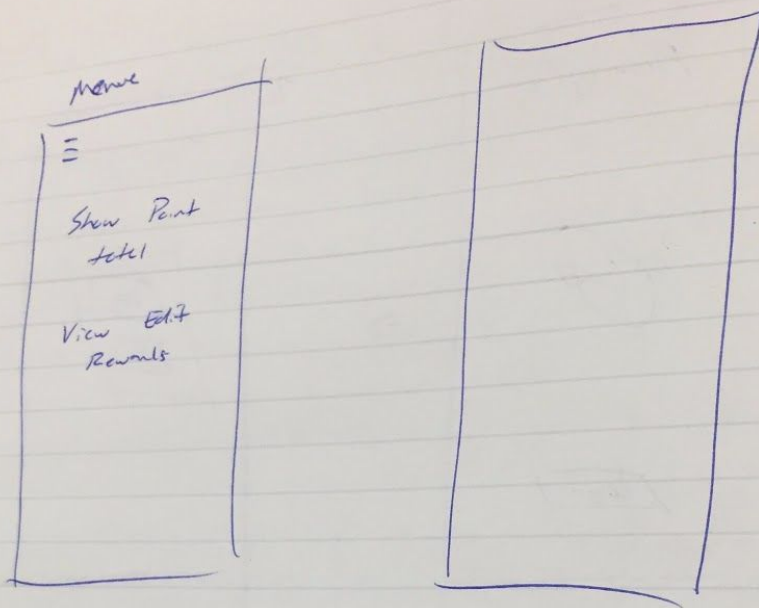 Menue
Show Point
total
View Edit
Rewards